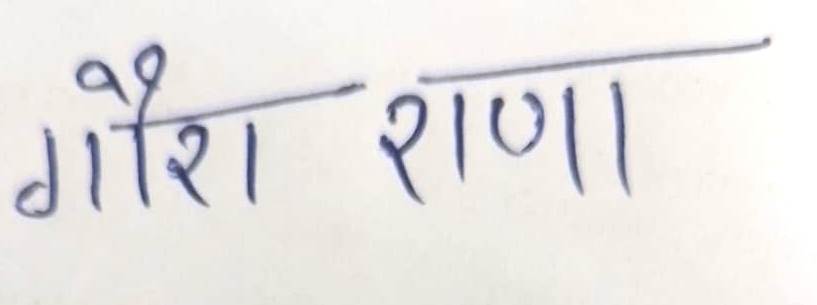 गौरा राणा